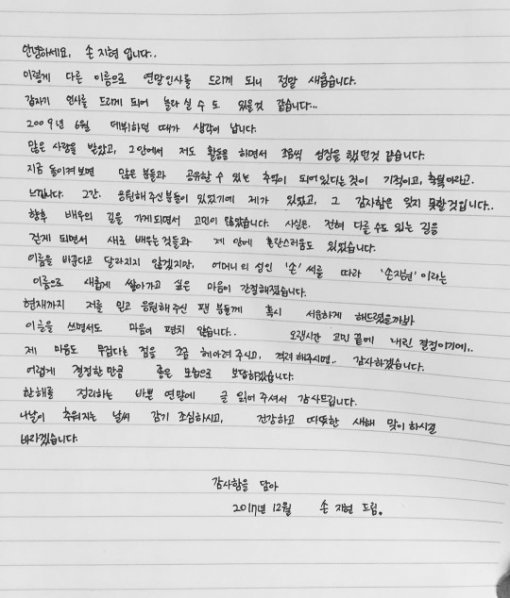 안녕하세요, 손지현 입니다..
이렇게 다른 이름으로 연말인사를 드리게 되니 정말 새롭습니다.
갑자기 인사를 드리게 되어 놀라실 수도 있을것 같습니다...
2009년 6월 데뷔하던 때가 생각이 납니다.
많은 사랑을 받았고, 그안에서 저도 활동을 하면서 조금씩 성장을 했던것 같습니다.
지금 돌이켜보면 많은 분들과 공유할 수 있는 추억이 되어있다는 것이 기적이고, 축복이라고.
느낍니다. 그간, 응원해주신분들이 있었기에 제가 있었고, 그 감사함은 잊지 못할것입니다..
향후 배우의 길을 가게되면서 고민이 많았습니다. 사실은, 전혀 다를 수도 있는 길을
걷게 되면서 새로 배우는것들과 제 안에 혼란스러움도 있었습니다.
이름을 바꾼다고 달라지진 않겠지만, 어머니의 성인 '손'씨를 따라 '손지현'이라는
이름으로 새롭게 살아가고 싶은 마음이 간절해졌습니다.
현재까지 저를 믿고 응원해주신 팬분들께 혹시 서운하게 해드렸을까봐
이 글을 쓰면서도 마음이 편치 않습니다.. 오랜시간 고민 끝에 내린 결정이기에..
제 마음도 무겁다는 점을 조금 헤아려주시고, 격려해주시면.. 감사하겠습니다.
어렵게 결정한 만큼 좋은 모습으로 보답하겠습니다.
한해를 정리하는 바쁜 연말에 글 읽어 주셔서 감사드립니다.
나날이 추워지는 날씨 감기 조심하시고, 건강하고 따뜻한 새해 맞이하시길
바라겠습니다.
감사함을 담아
2017년 12월 손지현 드림.